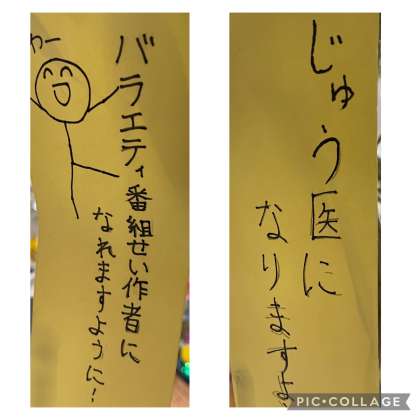 わー
バラエティ番組せい作者に
なれますように!
じゅう医に
なります
PIC•COLLAGE